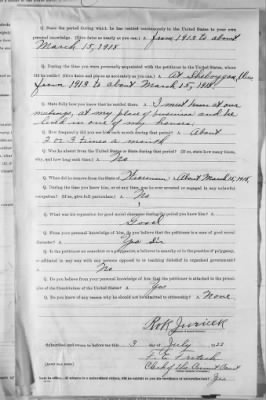 Q. State the period during which he has resided continuously in the United States to your own
personal knowledge. (Give dates as nearly as you can.) A. from 1913 to about
March 15, 1918.
Q. During the time you were personally acquainted with the petitioner in the United States, where
did he reside? (Give dates and places as accurately as you can.) A. At Sheboygan, Wis
from 1913 to about March 15, 1918
Q. State fully how you knew that he resided there. A. I met him at our
meetings, at my place of business and he
lived in one of my houses.
Q. How frequently did you see him each month during that period? A. About
2 or 3 times a month
Q. Was he absent from the United States or State during that period? (If so, state how many times,
why, and how long each time.) A. No
Q. When did he remove from the State of Wisconsin? A. About March 15, 1918.
Q. During the time you knew him, was he ever arrested or engaged in any unlawful
occupation? (If so, give full particulars.) A. No
Q. What was his reputation for good moral character during the period you knew him? A.
Good
Q. From your personal knowledge of him, do you believe that the petitioner is a man of good moral
character? A. Yes Sir
Q. Is the petitioner an anarchist or a polygamist, a believer in anarchy or in the practice of polygamy,
or affiliated in any way with any persons opposed to or teaching disbelief in organized government?
A. No
Q. Do you believe from your personal knowledge of him that the petitioner is attached to the principles
of the Constitution of the United States? A. Yes
Q. Do you know of any reason why he should not be admitted to citizenship? A. None.
Subscribed and sworn to before me this 3 day July
Clerk of the Circuit Court
Yes